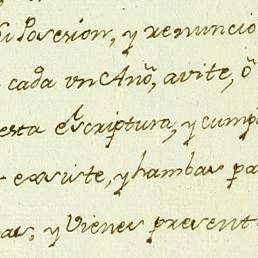 Posesion, y renuncio
cada vn Año, avite, ô
esta escriptura, y cump
exsiste, y hambas pa
y Vienes present